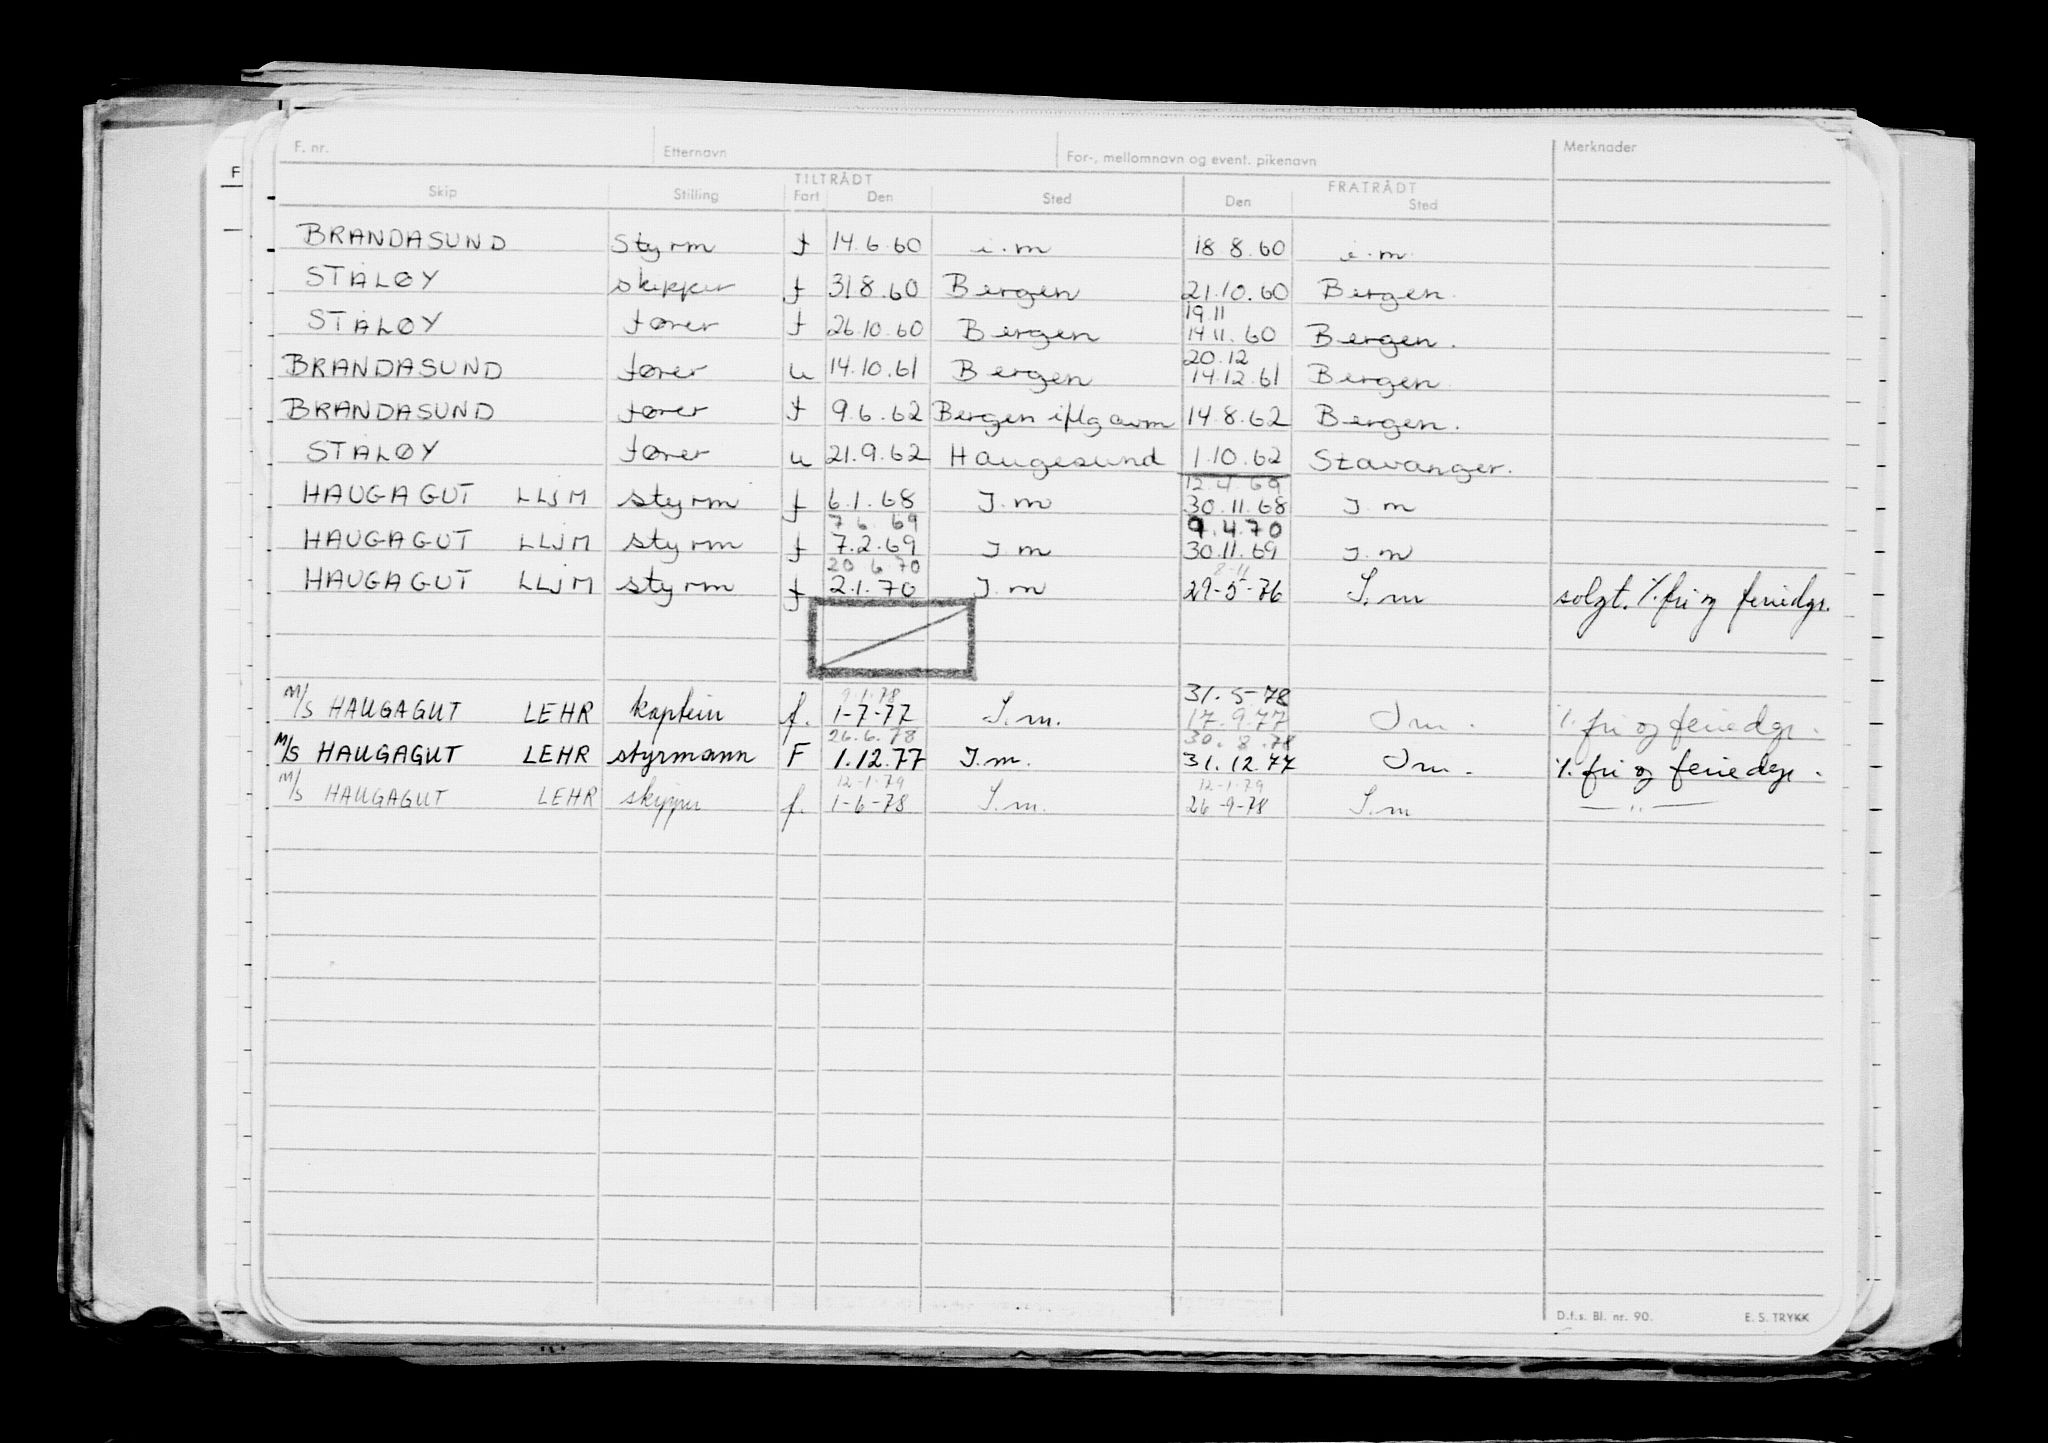 F
F. nr. Etternavn For-, mellomnavn og event. pikenavn Merknader
TILTRÅDT FRATRÅDT
Skip Stilling Fart Den Sted Den Sted
BRANDASUND Styrm f 14.6.60 i.m 18 8.60 i.m.
STÅLØY skipper f 31 8.60 Bergen 21.10.60 Bergen.
19.11
STÅLØY fører f 26.10.60 Bergen 14 11.60 Bergen.
20.12
BRANDASUND fører u 14.10.61 Bergen 14.12.61 Bergen
BRANDASUND fører f 9.6.62 Bergen iflg avm 14.8.62 Bergen.
STÅLØY fører u 21.9.62 Haugesund 1.10.62 Stavanger.
12.4.69
HAUGAGUT LLJM styrm f 6.1.68 I.m 30.11.68 I.m
7 6. 69 9.4.70
HAUGAGUT LLJM styrm f 7.2.69 I.m 30.11.69 I.m
20 6.70 8-11
HAUGAGUT LLJM styrm f 2.1.70 I.m 29-5-76 I.m solgt. %. fri og feriedgr.
9.1.78 31.5-78
M/S HAUGAGUT LEHR kaptein f. 1-7-77 I.m. 17.9.77 I m. %. fri og feriedgr.
26.6.78 30.8.78
M/S HAUGAGUT LEHR styrmann F 1.12.77 I.m. 31.12.77 I m. %. fri og feriedgr.
12-1-79 12-1-79
M/S HAUGAGUT LEHR skipper f. 1-6-78 I.m. 26-9-78 I.m — " —
D.f.s. Bl. nr. 90. E. S. TRYKK